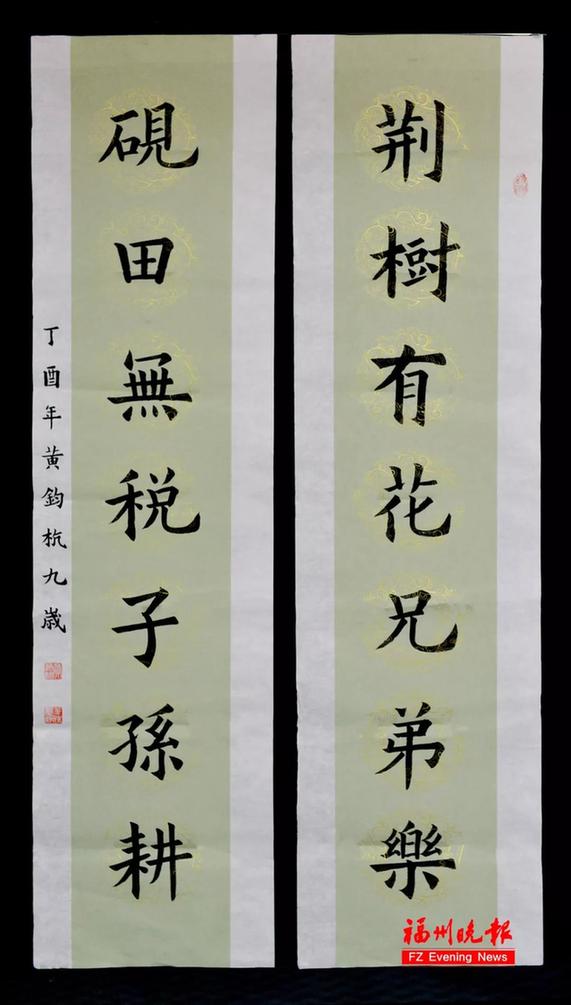 荆樹有花兄弟樂
硯田無税子孫耕
丁酉年黄鈞杭九歲
福州晚报
FZ Evening News